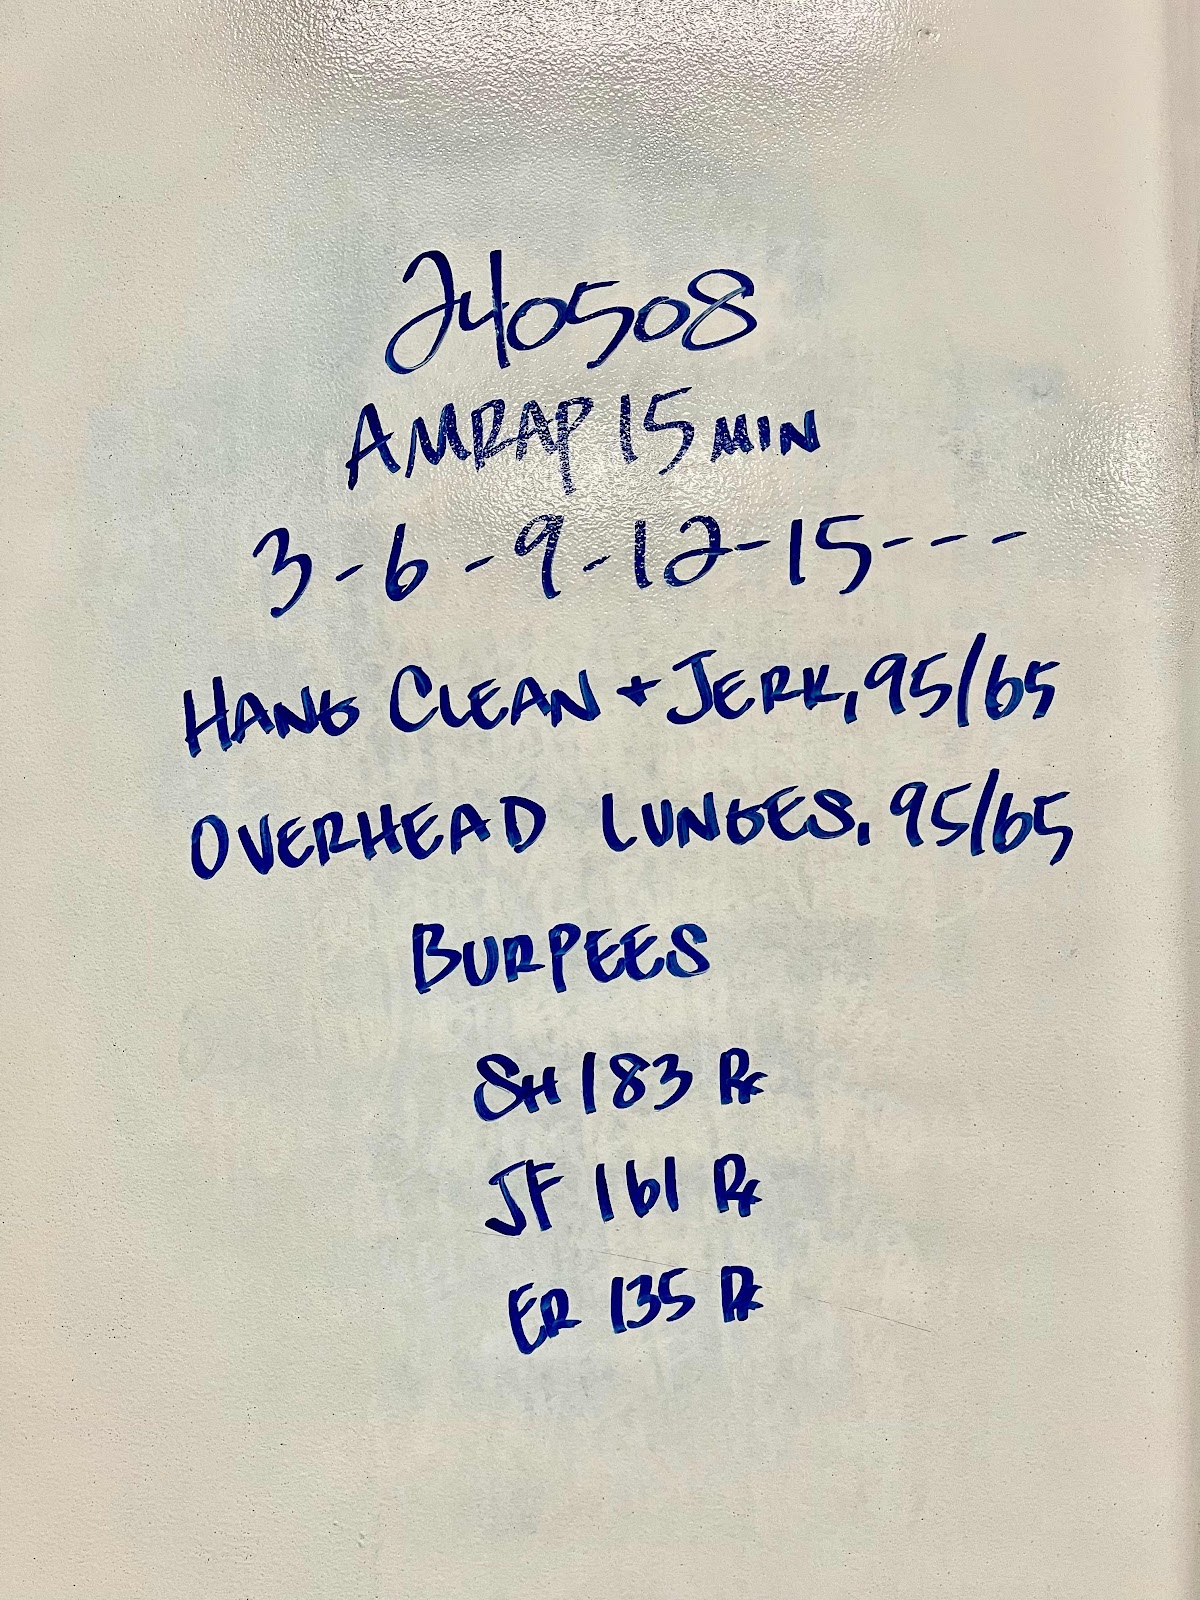 240508
AMRAP 15 MIN
3-6-9-12-15---
HANG CLEAN + JERK, 95/65
OVERHEAD LUNGES, 95/65
BURPEES
SH 183 Rx
JF 161 Rx
ER 135 Rx